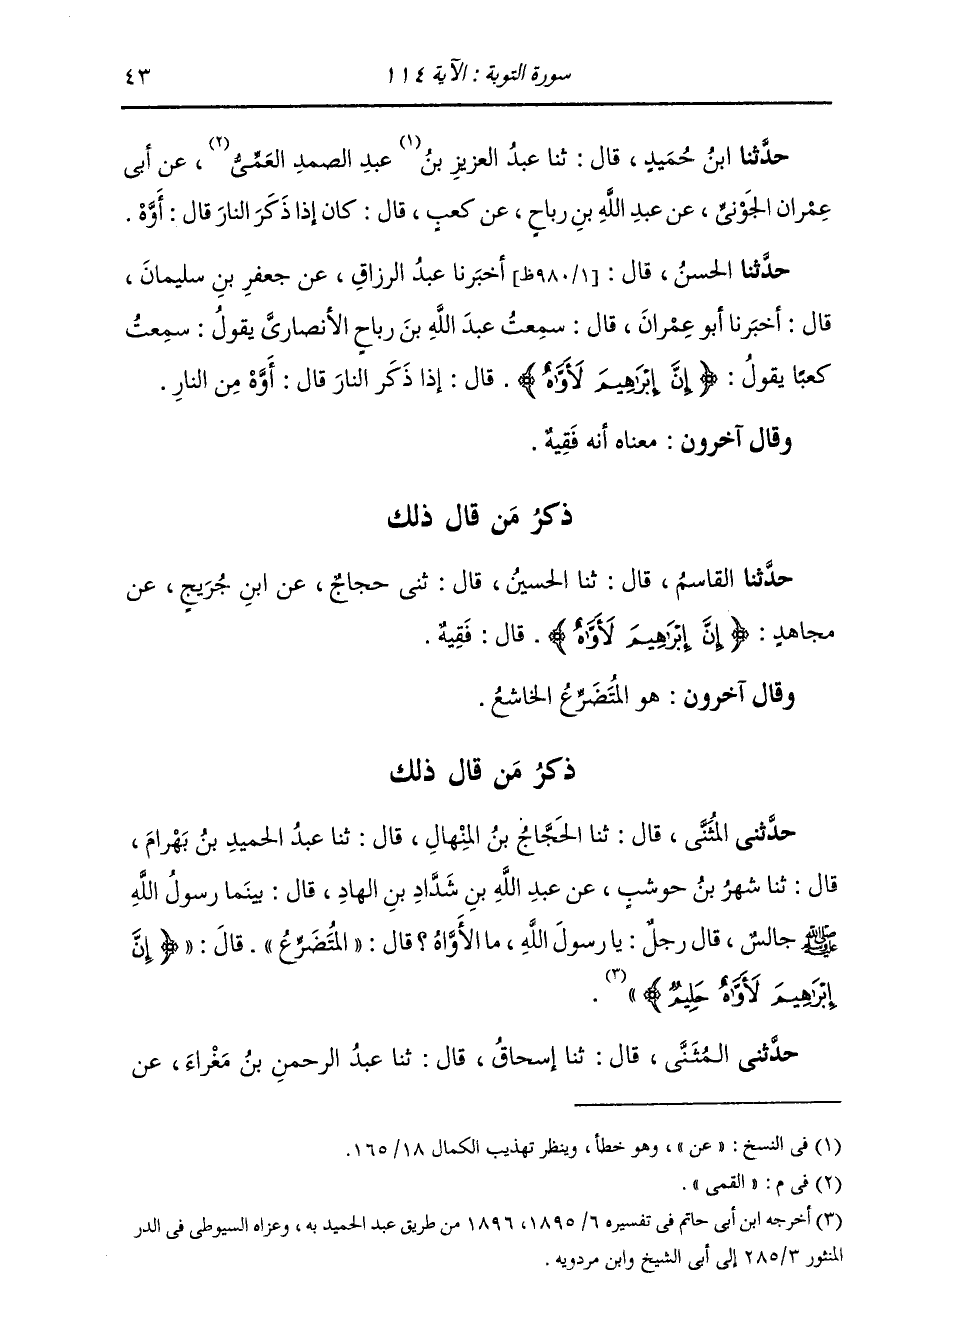 سورة التوبة : الآية ١١٤
٤٣
حدَّثنا ابنُ حُمَيدٍ ، قال : ثنا عبدُ العزيزِ بنُ(١) عبدِ الصمدِ العَمِّىُّ(٢) ، عن أبى
عِمْران الجَوْنىِّ ، عن عبدِ اللَّهِ بنِ رباحٍ ، عن كعبٍ ، قال : كان إذا ذَكَرَ النارَ قال : أَوَّهْ .
حدَّثنا الحسنُ ، قال : [٩٨٠/١ظ] أخبَرنا عبدُ الرزاقِ ، عن جعفرِ بنِ سليمانَ ،
قال : أخبَرنا أبو عِمْرانَ ، قال : سمِعتُ عبدَ اللَّهِ بنَ رباحٍ الأنصارىَّ يقولُ : سمِعتُ
كعبًا يقولُ : ﴿ إِنَّ إِبْرَٰهِيمَ لَأَوَّٰهٌ ﴾ . قال : إذا ذَكَر النارَ قال : أَوَّهْ مِن النارِ .
وقال آخرون : معناه أنه فَقِيهٌ .
ذكرُ مَن قال ذلك
حدَّثنا القاسمُ ، قال : ثنا الحسينُ ، قال : ثنى حجاجٌ ، عن ابنِ جُرَيجٍ ، عن
مجاهدٍ : ﴿ إِنَّ إِبْرَٰهِيمَ لَأَوَّٰهٌ ﴾ . قال : فَقِيهٌ .
وقال آخرون : هو المُتَضَرِّعُ الخاشعُ .
ذكرُ مَن قال ذلك
حدَّثنى المُثَنَّى ، قال : ثنا الحَجَّاجُ بنُ المِنْهالِ ، قال : ثنا عبدُ الحميدِ بنُ بَهْرامَ ،
قال : ثنا شهرُ بنُ حوشبٍ ، عن عبدِ اللَّهِ بنِ شَدَّادِ بنِ الهادِ ، قال : بينَما رسولُ اللَّهِ
ﷺ جالسٌ ، قال رجلٌ : يا رسولَ اللَّهِ ، ما الأَوَّاهُ ؟ قال : « المُتَضَرِّعُ » . قالَ : « ﴿ إِنَّ
إِبْرَٰهِيمَ لَأَوَّٰهٌ حَلِيمٌ ﴾ »(٣) .
حدَّثنى المُثَنَّى ، قال : ثنا إسحاقُ ، قال : ثنا عبدُ الرحمنِ بنُ مَغْراءَ ، عن
(١) فى النسخ : « عن » ، وهو خطأ ، وينظر تهذيب الكمال ١٨/ ١٦٥.
(٢) فى م : « القمى » .
(٣) أخرجه ابن أبى حاتم فى تفسيره ٦/ ١٨٩٥، ١٨٩٦ من طريق عبد الحميد به ، وعزاه السيوطى فى الدر
المنثور ٢٨٥/٣ إلى أبى الشيخ وابن مردويه .